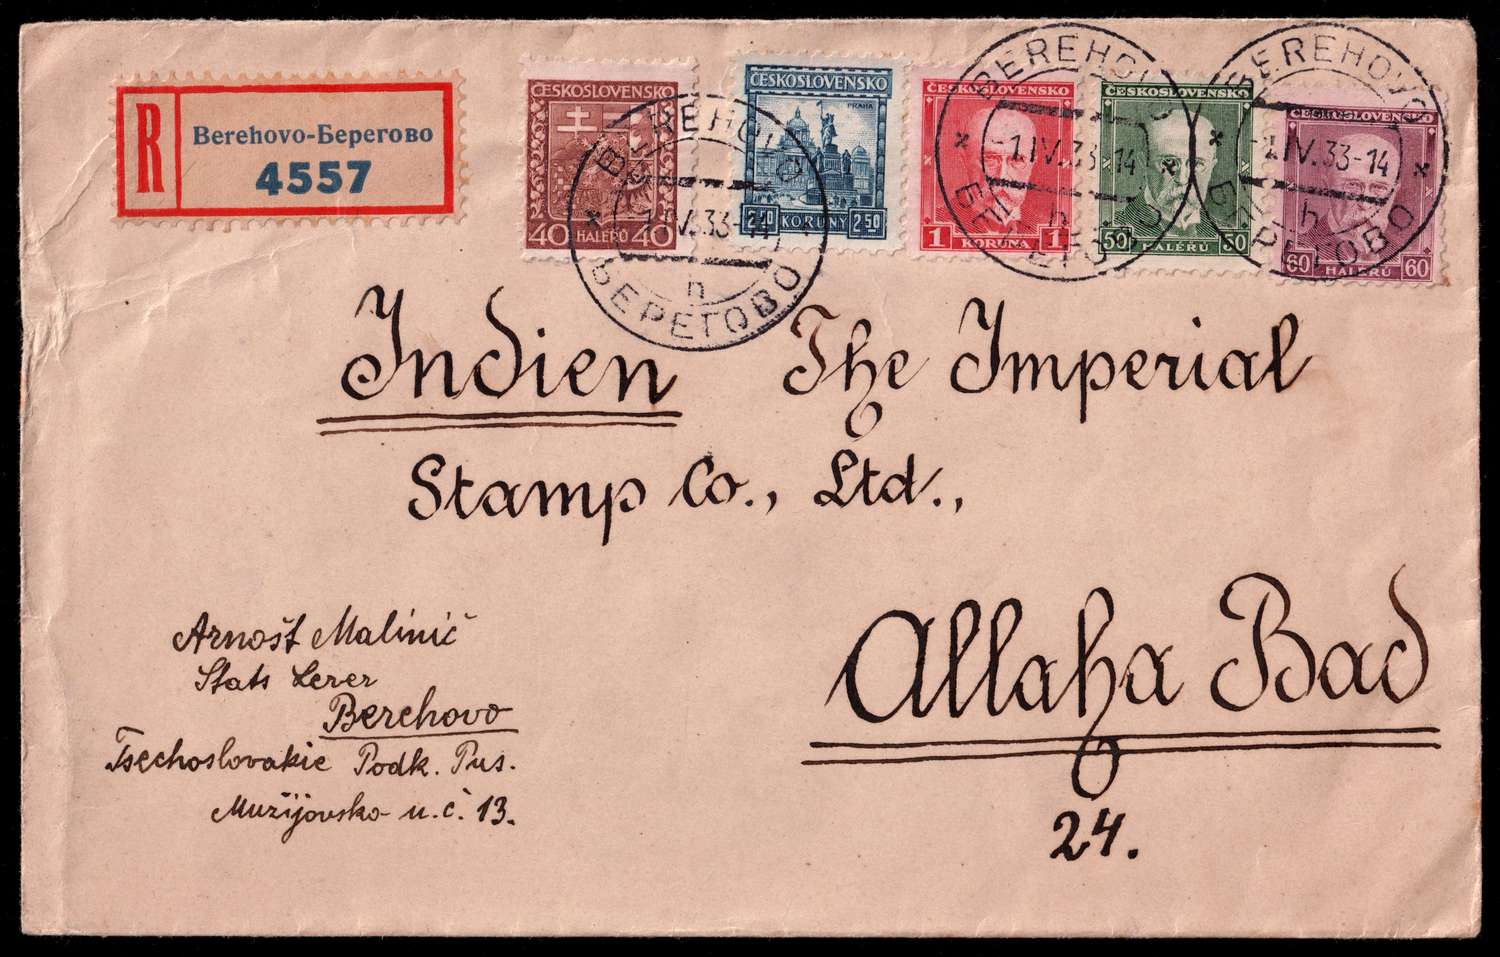 R
Berehovo-Берегово
4557
ČESKOSLOVENSKO
40 HALÉŘŮ 40
ČESKOSLOVENSKO
PRAHA
2·50 KORUNY 2·50
ČESKOSLOVENSKO
1 KORUNA 1
ČESKOSLOVENSKO
50 HALÉŘŮ 50
ČESKOSLOVENSKO
60 HALÉŘŮ 60
BEREHOVO
-1.IV.33-14
h
БЕРЕГОВО
BEREHOVO
-1.IV.33-14
h
БЕРЕГОВО
BEREHOVO
-1.IV.33-14
h
БЕРЕГОВО
Indien The Imperial
Stamp Co., Ltd.,
Allaha Bad
24.
Arnošt Malinič
Stats Lerer
Berehovo
Tsechoslovakie Podk. Rus.
Muzijovska u.č. 13.